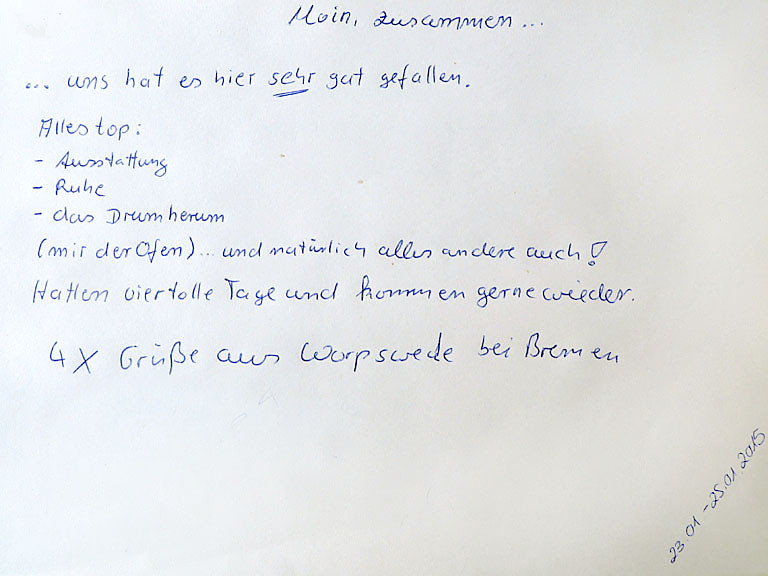 Moin, zusammen...
... uns hat es hier sehr gut gefallen.
Alles top:
- Ausstattung
- Ruhe
- das Drumherum
(mir der Ofen)... und natürlich alles andere auch!
Hatten vier tolle Tage und kommen gerne wieder.
4x Grüße aus Worpswede bei Bremen
23.01 - 25.01.2015